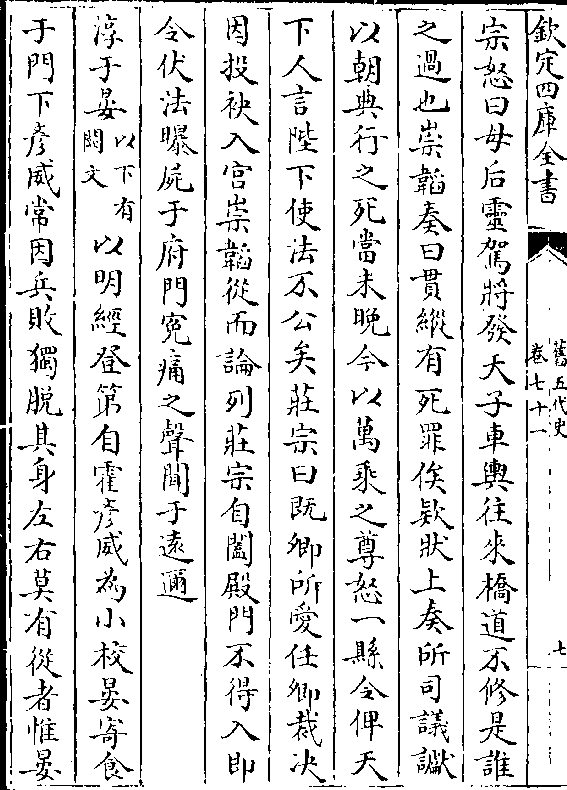 欽定四庫全書
舊五代史
卷七十一
七
宗怒曰母后靈駕將發天子車輿往來橋道不修是誰
之過也崇韜奏曰貫縱有死罪俟欵狀上奏所司議讞
以朝典行之死當未晚今以萬乘之尊怒一縣令俾天
下人言陛下使法不公矣莊宗曰既卿所愛任卿裁决
因投袂入宫崇韜從而論列莊宗自闔殿門不得入即
令伏法曝屍于府門寃痛之聲聞于遠邇
淳于晏以下有闕文以明經登第自霍彦威為小校晏寄食
于門下彦威常因兵敗獨脱其身左右莫有從者惟晏